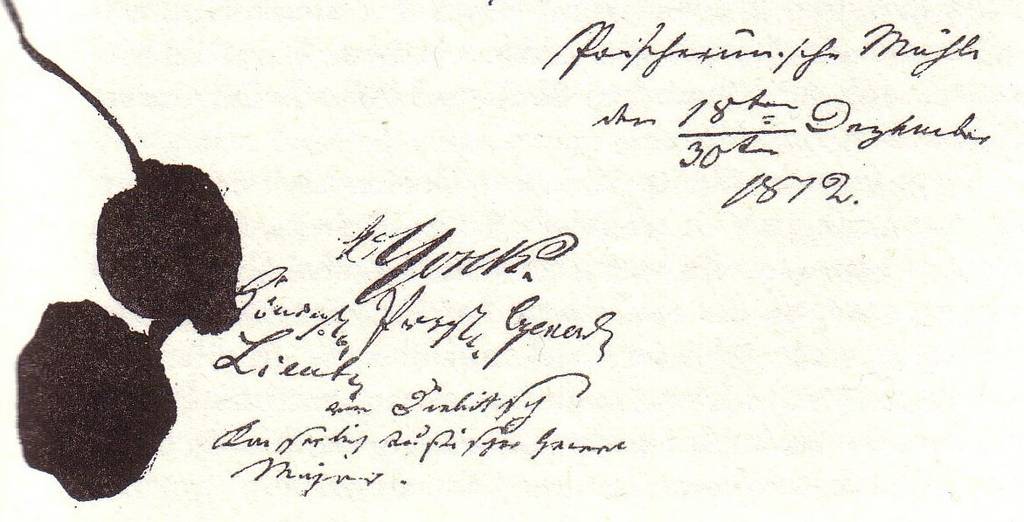 Poischerun.sche Mühle
den 18ten Dezember
30ten
1812.
v. Yorck.
Königl. Preuß. General
Lieut.
von Diebitsch
Kaiserlich russischer General
Major.